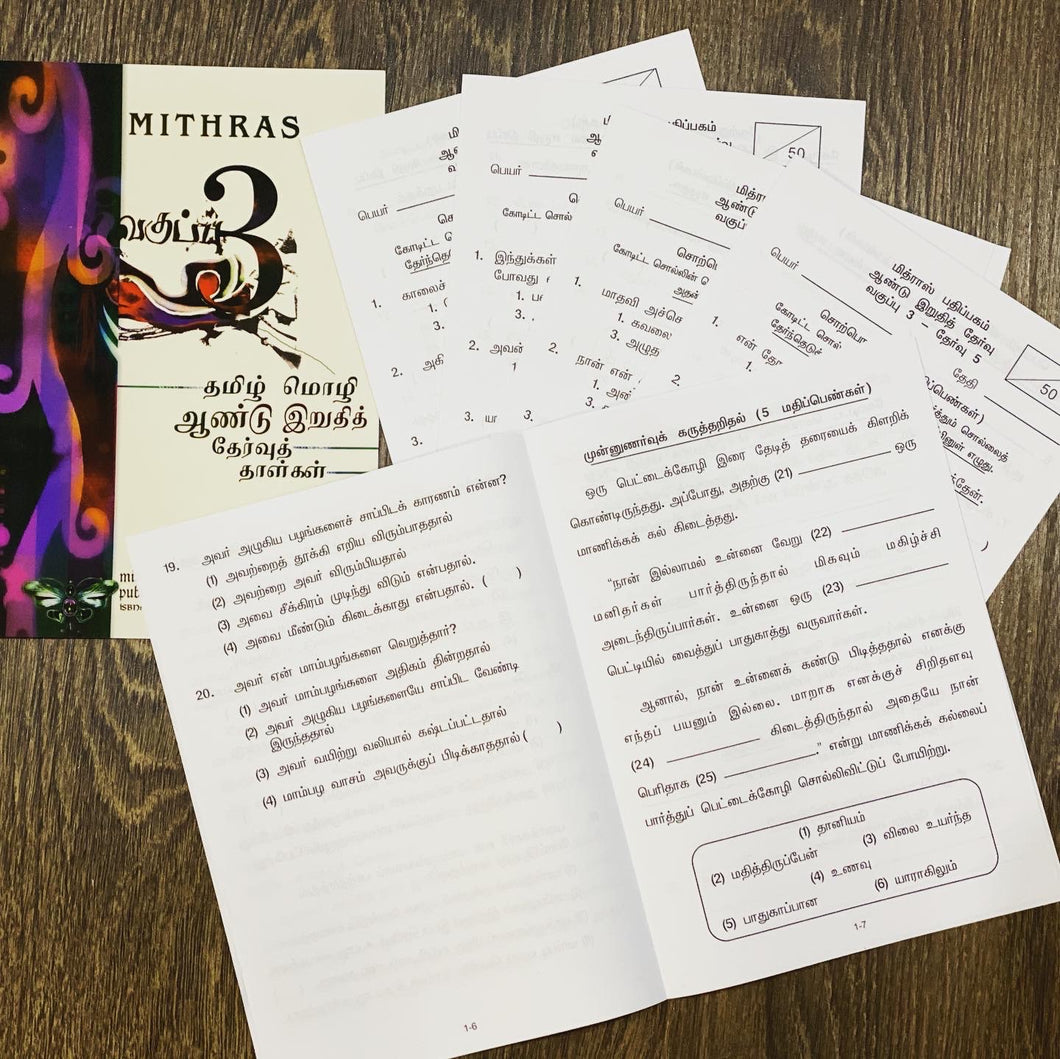 MITHRAS
வகுப்பு 3
தமிழ் மொழி
ஆண்டு இறுதித்
தேர்வுத்
தாள்கள்
பெயர்
கோடிட்ட
1. காலைச்
1. (
3.
2.
3.
பெயர்
கோடிட்ட சொல்
1. இந்துக்கள்
போவது
1.
3.
2. அவன்
1
3.
பெயர்
கோடிட்ட சொல்லின்
அதன்
1. மாதவி அச்செ
1. கவலை
3. அழுத
2. நான் என்
1.
3.
3.
பதிப்பகம்
50
மித்ராஸ் பதிப்பகம்
ஆண்டு இறுதித் தேர்வு
வகுப்பு 3 – தேர்வு 5
50
பெயர்
தேதி
கோடிட்ட சொல்
சொல்லைத்
எழுது.
1. என்
1.
2.
19. அவர் அழுகிய பழங்களைச் சாப்பிடக் காரணம் என்ன?
(1) அவற்றைத் தூக்கி எறிய விரும்பாததால்
(2) அவற்றை அவர் விரும்பியதால்
(3) அவை சீக்கிரம் முடிந்து விடும் என்பதால்.
(4) அவை மீண்டும் கிடைக்காது என்பதால். ( )
20. அவர் ஏன் மாம்பழங்களை வெறுத்தார்?
(1) அவர் மாம்பழங்களை அதிகம் தின்றதால்
(2) அவர் அழுகிய பழங்களையே சாப்பிட வேண்டி
இருந்ததால்
(3) அவர் வயிற்று வலியால் கஷ்டப்பட்டதால்
(4) மாம்பழ வாசம் அவருக்குப் பிடிக்காததால் ( )
1-6
முன்னுணர்வுக் கருத்தறிதல் (5 மதிப்பெண்கள்)
ஒரு பெட்டைக்கோழி இரை தேடித் தரையைக் கிளறிக்
கொண்டிருந்தது. அப்போது, அதற்கு (21) __________ ஒரு
மாணிக்கக் கல் கிடைத்தது.
"நான் இல்லாமல் உன்னை வேறு (22) __________
மனிதர்கள் பார்த்திருந்தால் மிகவும் மகிழ்ச்சி
அடைந்திருப்பார்கள். உன்னை ஒரு (23) __________
பெட்டியில் வைத்துப் பாதுகாத்து வருவார்கள்.
ஆனால், நான் உன்னைக் கண்டு பிடித்ததால் எனக்கு
எந்தப் பயனும் இல்லை. மாறாக எனக்குச் சிறிதளவு
(24) __________ கிடைத்திருந்தால் அதையே நான்
பெரிதாக (25) __________." என்று மாணிக்கக் கல்லைப்
பார்த்துப் பெட்டைக்கோழி சொல்லிவிட்டுப் போயிற்று.
(1) தானியம்
(2) மதித்திருப்பேன் (3) விலை உயர்ந்த
(4) உணவு
(5) பாதுகாப்பான (6) யாராகிலும்
1-7